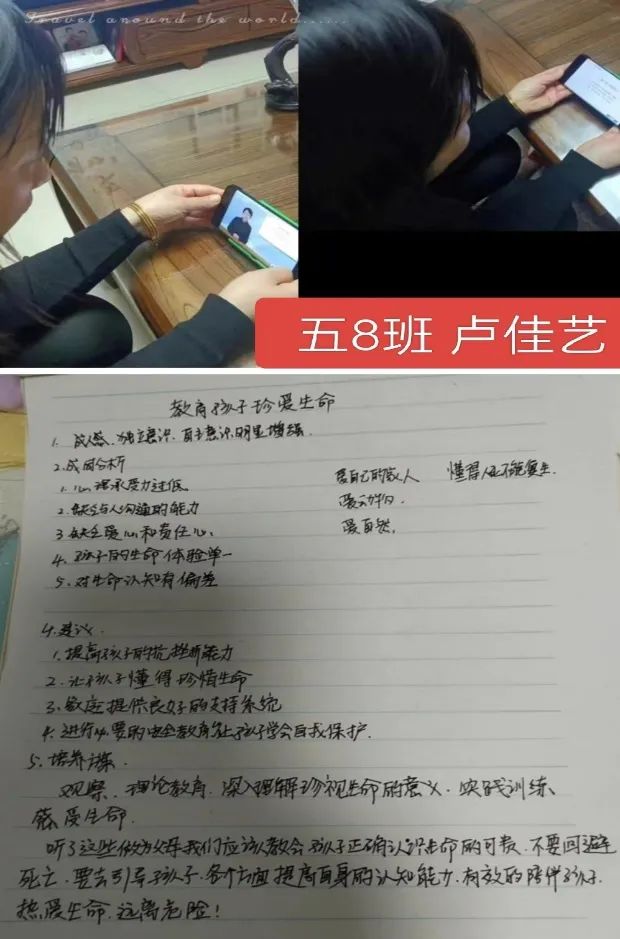 Travel around the world......
五8班 卢佳艺
教育孩子珍爱生命
1. 成人感、独立意识、自主意识明显增强.
2. 成因分析
1. 心理承受力过低
爱自己的家人 懂得人死不能复生.
2. 缺乏与人沟通的能力
爱动物
3. 缺乏爱心和责任心
爱自然.
4. 孩子的生命体验单一
5. 对生命认知有偏差
4. 建议
1. 提高孩子的抗挫折能力
2. 让孩子懂得珍惜生命
3. 家庭提供良好的支持系统
4. 进行必要的安全教育能让孩子学会自我保护.
5. 培养训练
观察、理论教育、深入理解珍视生命的意义、实践训练、
感受生命.
听了这些做为父母我们应该教会孩子正确认识生命的可贵、不要回避
死亡、要去引导孩子、各个方面提高自身的认知能力、有效的陪伴孩子.
热爱生命、远离危险!